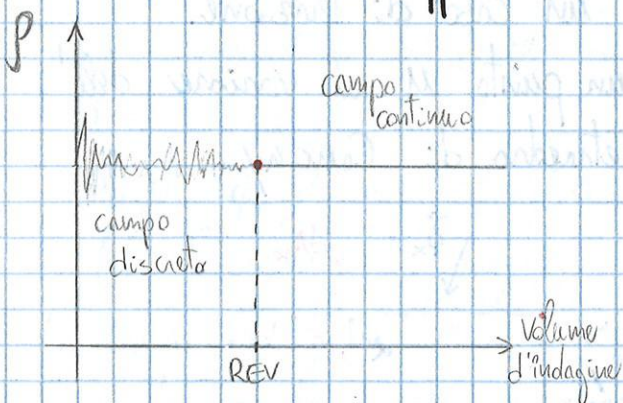 ρ
campo
continuo
campo
discreto
REV
volume
d'indagine